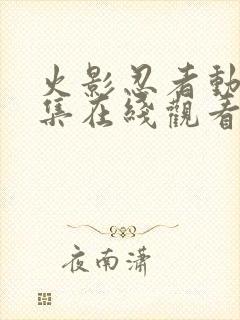 火影忍者動
集在綫觀看
夜南潇